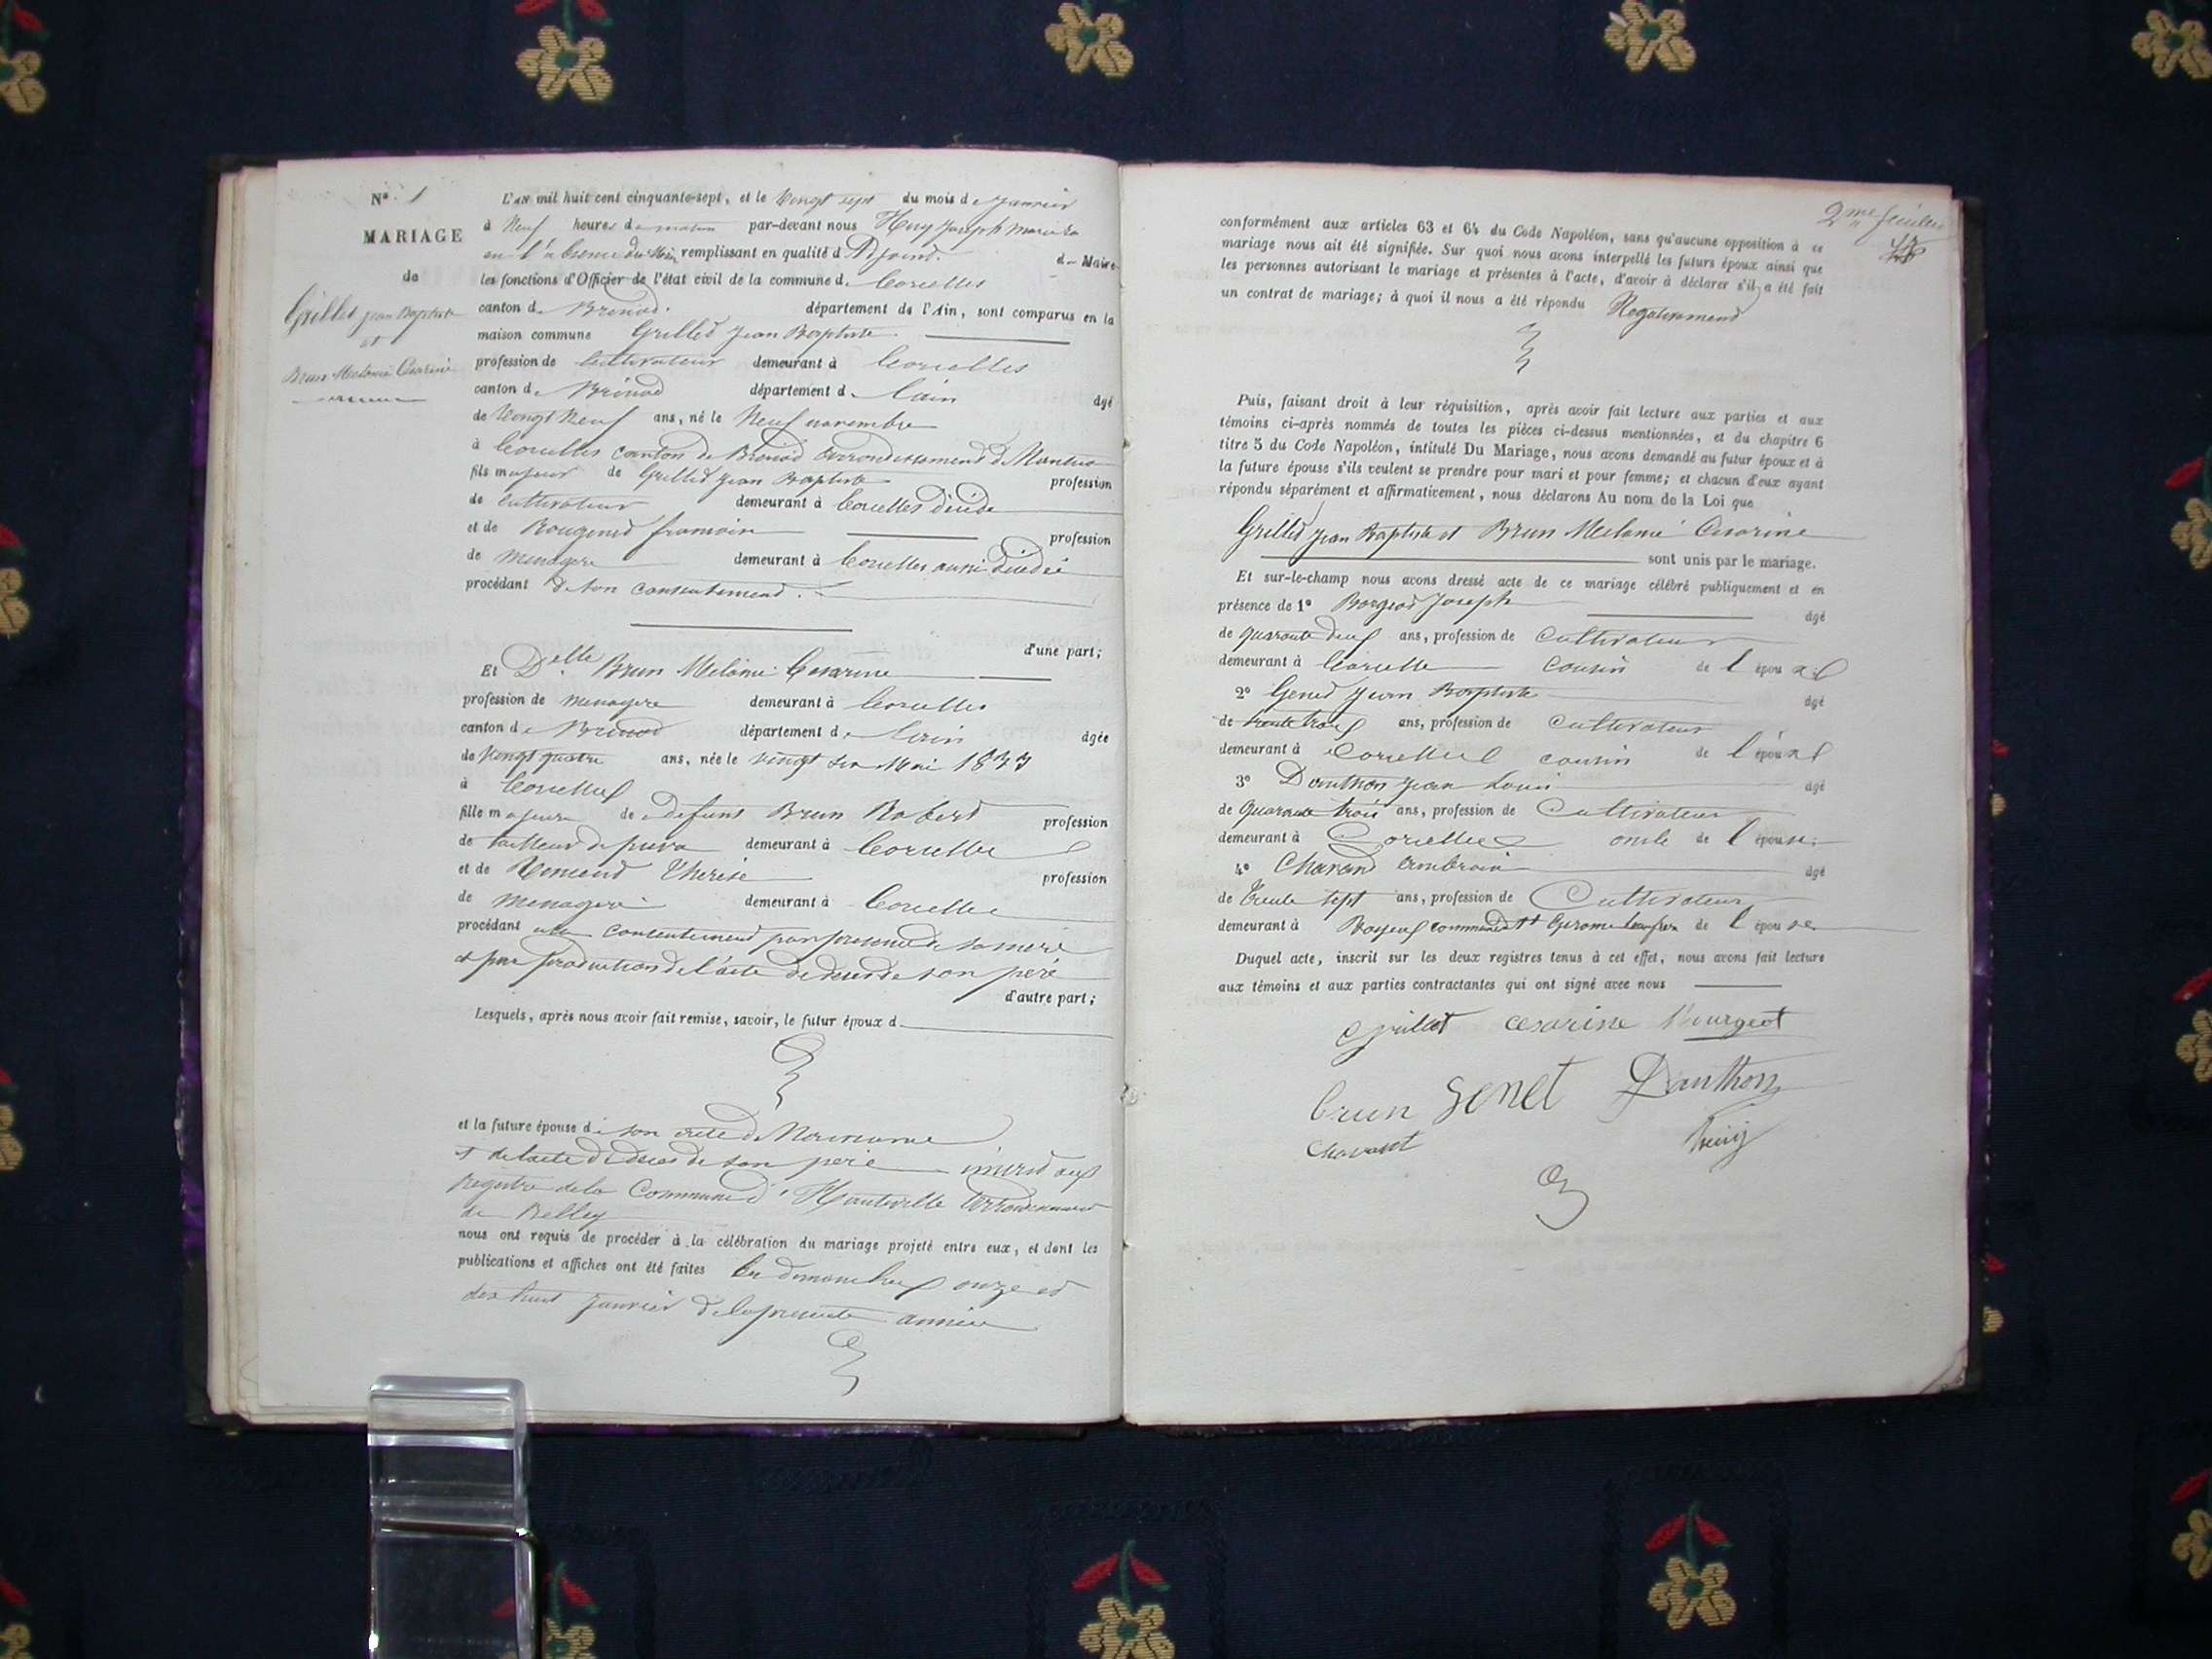 Nº 1
MARIAGE
de
Grillet jean Baptiste
et
Brun Melanie Cesarine
L'AN mil huit cent cinquante-sept, et le Vingt sept du mois de janvier
à Neuf heures du matin par-devant nous Huy joseph
en l'absence du Maire remplissant en qualité d'Adjoind. de Maire
les fonctions d'Officier de l'état civil de la commune de Corcelles
canton de Brenod. département de l'Ain, sont comparus en la
maison commune Grilled jean Baptiste
profession de cultivateur demeurant à Corcelles
canton de Brénod département de Lain âgé
de Vengt Neuf ans, né le Neuf novembre
à Corcelles canton de Brénod Arrondissemend de Nantua
fils majeur de Grilled jean Baptiste profession
de cultivateur demeurant à Corcelles décédé
et de Rougemd profession
de menagere demeurant à Corcelles aussi décédée
procédant de son consentemend.
d'une part;
Et Delle Brun Melanie Cesarine
profession de menagere demeurant à Corcelles
canton de Brénod département de Lain âgée
de Vengt quatre ans, née le vingt six Mai 1833
à Corcelles
fille majeure de defunt Brun Roberd profession
de tailleur de demeurant à Corcelles
et de Thérèse profession
de menagere demeurant à Corcelles
procédant du consentemend par presence de sa mère
et par production de l'acte de deces de son père
d'autre part;
Lesquels, après nous avoir fait remise, savoir, le futur époux d
et la future épouse de son acte de Naissance
et de lacte de deces de son père inserid aux
registre de la Commune d'Hauteville Arrondissement
de Belley
nous ont requis de procéder à la célébration du mariage projeté entre eux, et dont les
publications et affiches ont été faites les dimanches onze et
dix huit janvier de la presente année
2me feuillet
conformément aux articles 63 et 64 du Code Napoléon, sans qu'aucune opposition à ce
mariage nous ait été signifiée. Sur quoi nous avons interpellé les futurs époux ainsi que
les personnes autorisant le mariage et présentes à l'acte, d'avoir à déclarer s'il a été fait
un contrat de mariage; à quoi il nous a été répondu Negativemend
Puis, faisant droit à leur réquisition, après avoir fait lecture aux parties et aux
témoins ci-après nommés de toutes les pièces ci-dessus mentionnées, et du chapitre 6
titre 5 du Code Napoléon, intitulé Du Mariage, nous avons demandé au futur époux et à
la future épouse s'ils veulent se prendre pour mari et pour femme; et chacun d'eux ayant
répondu séparément et affirmativement, nous déclarons Au nom de la Loi que
Grilled jean Baptiste et Brun Melanie Cesarine
sont unis par le mariage.
Et sur-le-champ nous avons dressé acte de ce mariage célébré publiquement et en
présence de 1º Borgeod Joseph âgé
de quaroute deux ans, profession de Cultivateur
demeurant à Corcelle cousin de l'époux
2º Gened jean Baptiste âgé
de trente trois ans, profession de Cultivateur
demeurant à Corcelles cousin de l'époux
3º Danthon jean Louis âgé
de quaroute trois ans, profession de Cultivateur
demeurant à Corcelles oncle de l'épouse
4º Chavand Ambroise âgé
de trente sept ans, profession de Cultivateur
demeurant à commune de St Gerome de l'épouse
Duquel acte, inscrit sur les deux registres tenus à cet effet, nous avons fait lecture
aux témoins et aux parties contractantes qui ont signé avec nous
grillet cesarine bourgeot
brun Genet Danthon
Chavant huij